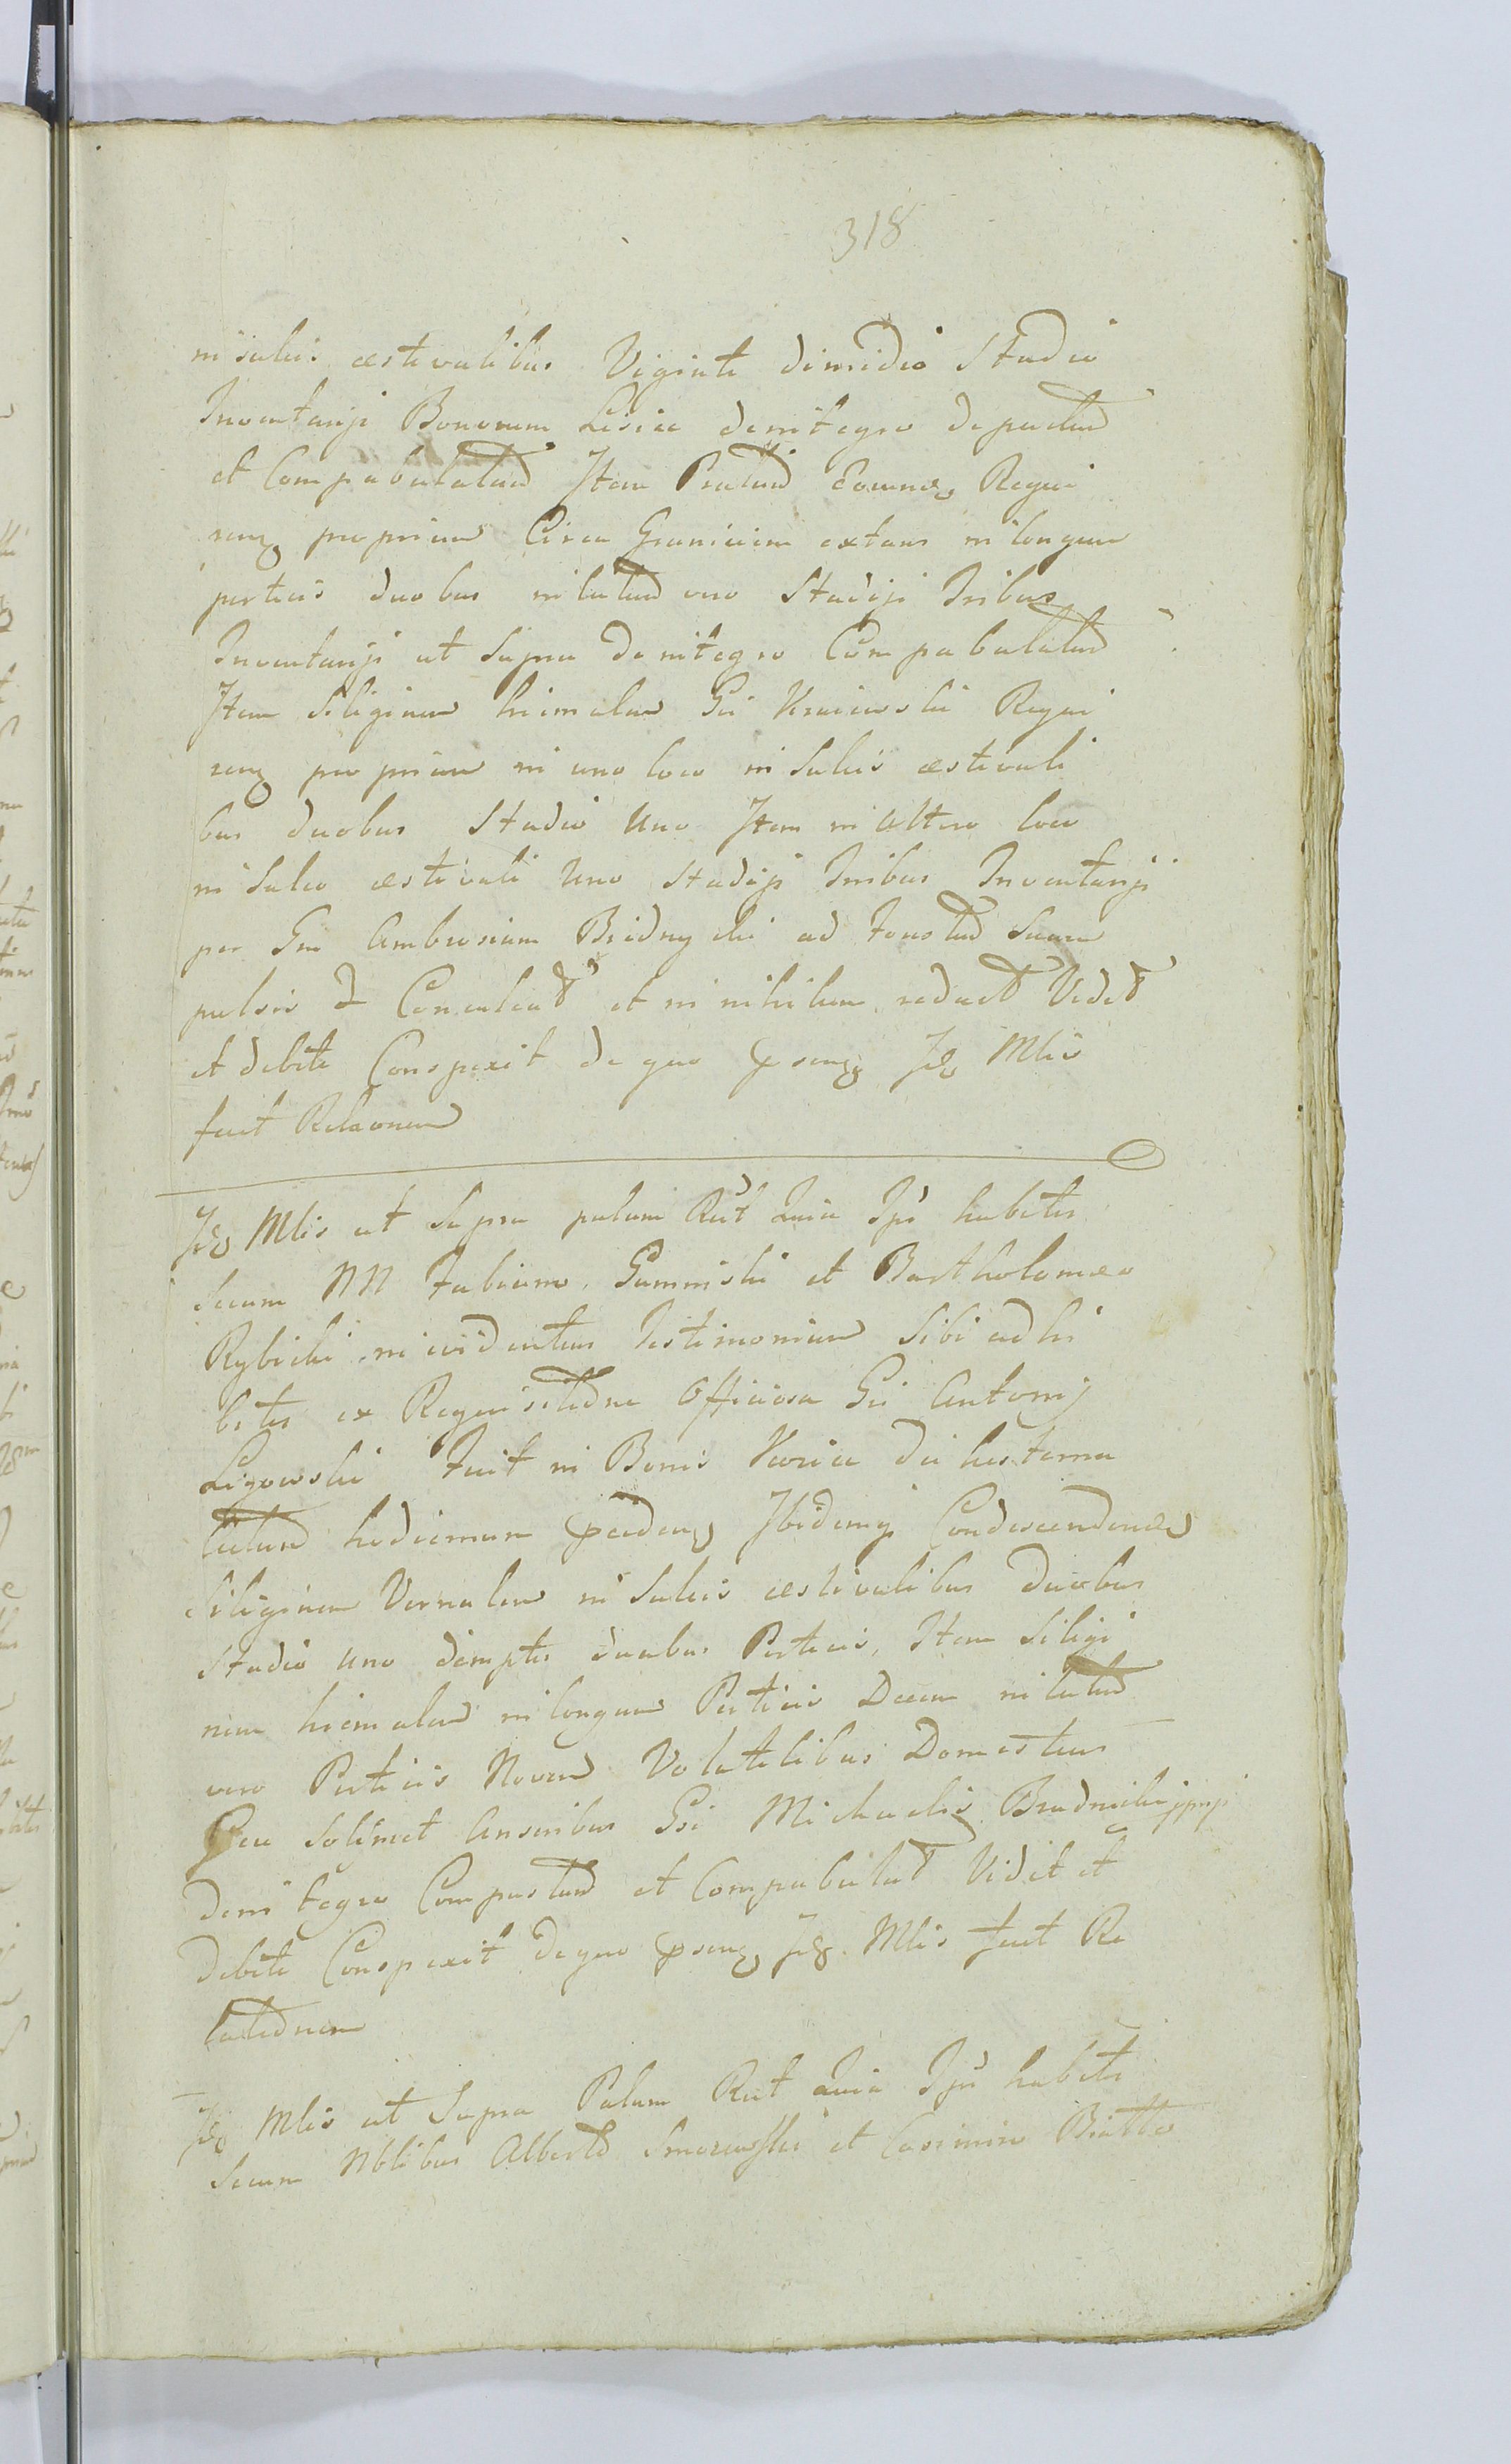 318
in sulcis aestivalibus Viginti dimidio Studio
Inventarij Bonorum Lisice de integro depactum
et Compabulatum Item Pratum Eorundem Requi
rentium proprium Circa Graniciem extans in longum
perticis duobus in latum vero Stadijs Tribus
Inventarij ut Supra de integro Compabulatum
Item Siliginem hiemalem Gsi Requi
rentis proprium in uno loco in Sulcis aestivali
bus duobus Studio Uno Item in Altero loco
in Sulco aestivali Uno Stadijs Tribus Inventarij
per Gsm Ambrosium ad Suum
pulsis et Conculcat et in nihilum redact Vidit
et debite Conspexit de quo psentem Idem Mlis
fecit Relaonem
Idem Mlis ut Supra palam Rct Quia Ipse habitis
Secum NN Fabiano et Bartholomaeo
Rybicki in evidentius Testimonium Sibi adhi
bitis ex Requisitione Officiosa Gsi Antonij
Ligowski Fuit in Bonis die hesterna
hodiernum Ibidemq Condescendendo
Siliginem Vernalem in Sulcis aestivalibus duobus
Studio uno demptis duabus Perticis, Item Siligi
nem hiemalem in longum Perticis Decem in latum
vero Perticis Novem Volatilibus Domesticis
Seu Solimet Anseribus Gsi Michaelis
de integro Compastum et Compabulat Vidit et
debite Conspexit de quo psentem Idem Mlis fecit Re
lationem
Idem Mlis ut Supra Palam Rct Quia Ipse habitis
Secum Nblibus Alberto et Casimiro